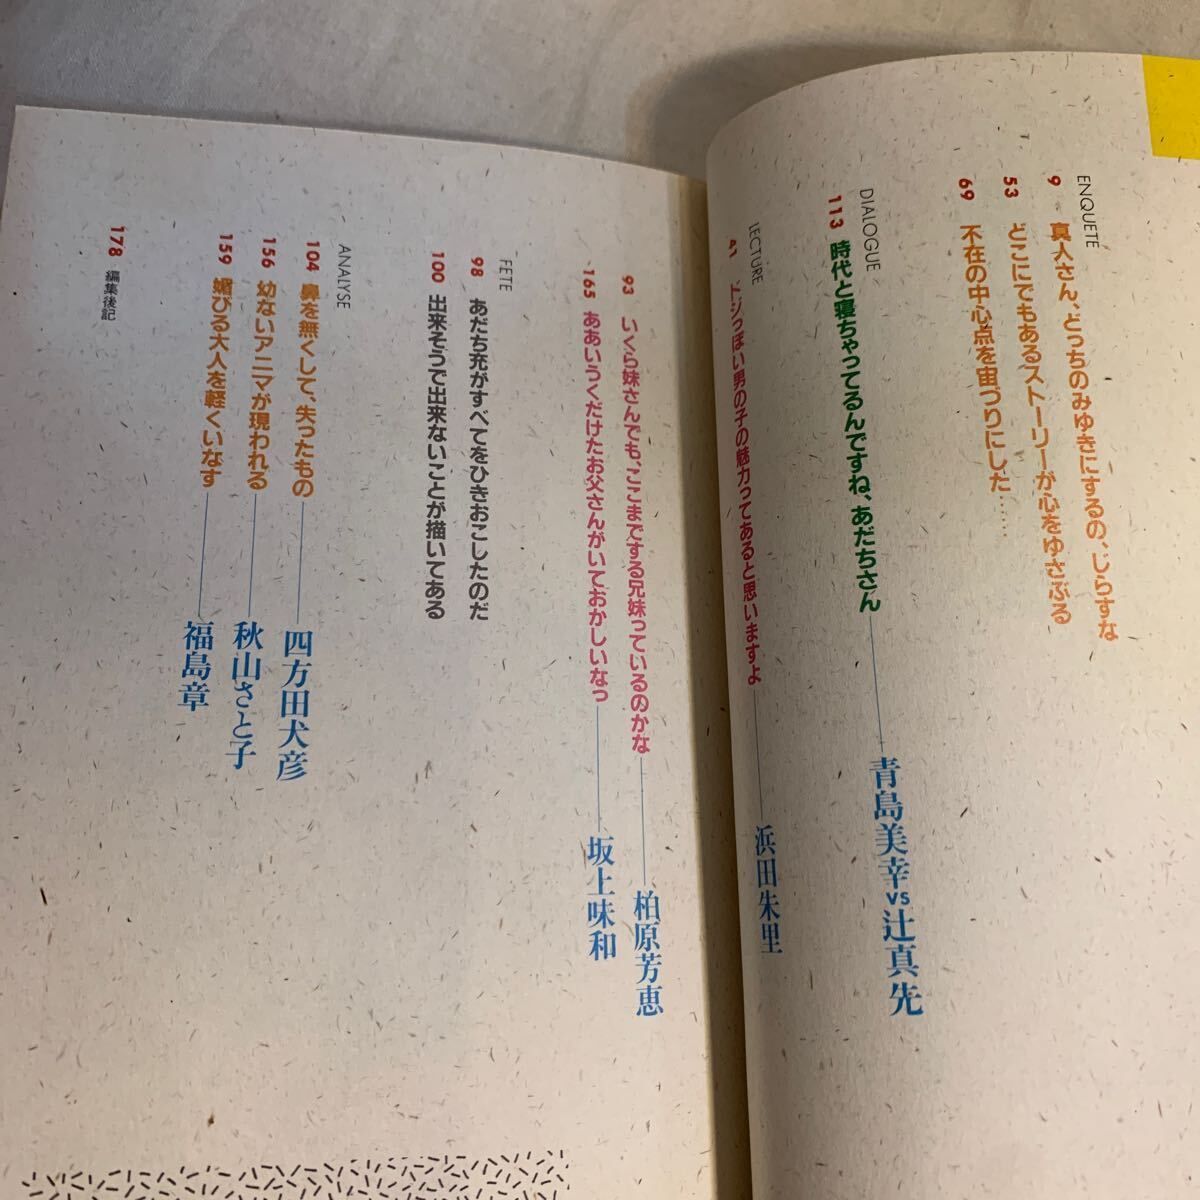 ENQUETE
9 真人さん、どっちのみゆきにするの、じらすな
53 どこにでもあるストーリーが心をゆさぶる
69 不在の中心点を宙づりにした……
DIALOGUE
113 時代と寝ちゃってるんですね、あだちさん——青島美幸vs辻真先
LECTURE
41 ドジっぽい男の子の魅力ってあると思いますよ——浜田朱里
93 いくら妹さんでも、ここまでする兄妹っているのかな——柏原芳恵
165 ああいうくだけたお父さんがいておかしいなっ——坂上味和
FETE
98 あだち充がすべてをひきおこしたのだ
100 出来そうで出来ないことが描いてある
ANALYSE
104 鼻を無くして、失ったもの——四方田犬彦
156 幼ないアニマが現われる——秋山さと子
159 媚びる大人を軽くいなす——福島章
178 編集後記